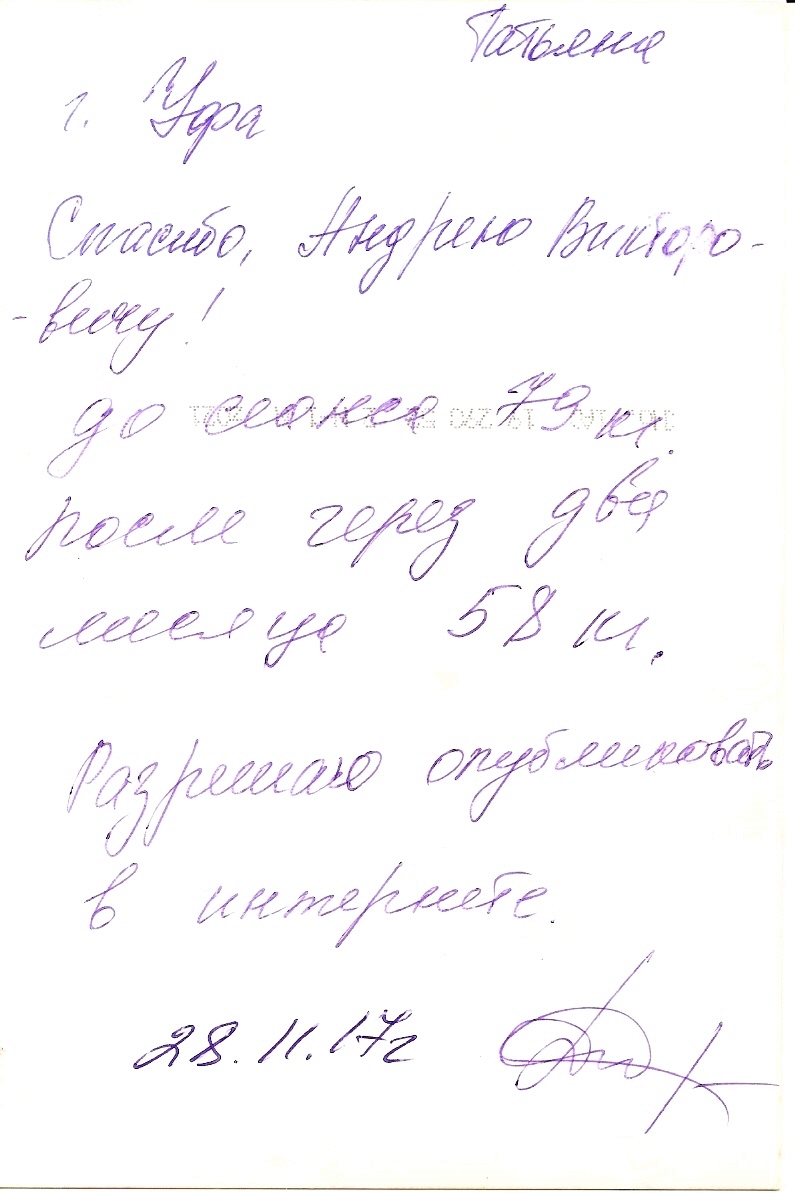 Татьяна
г. Уфа
Спасибо, Андрею Викторо-
-вичу!
до сеанса 79 кг.
после через два
месяца 58 кг.
Разрешаю опубликовать
в интернете.
28.11.17г